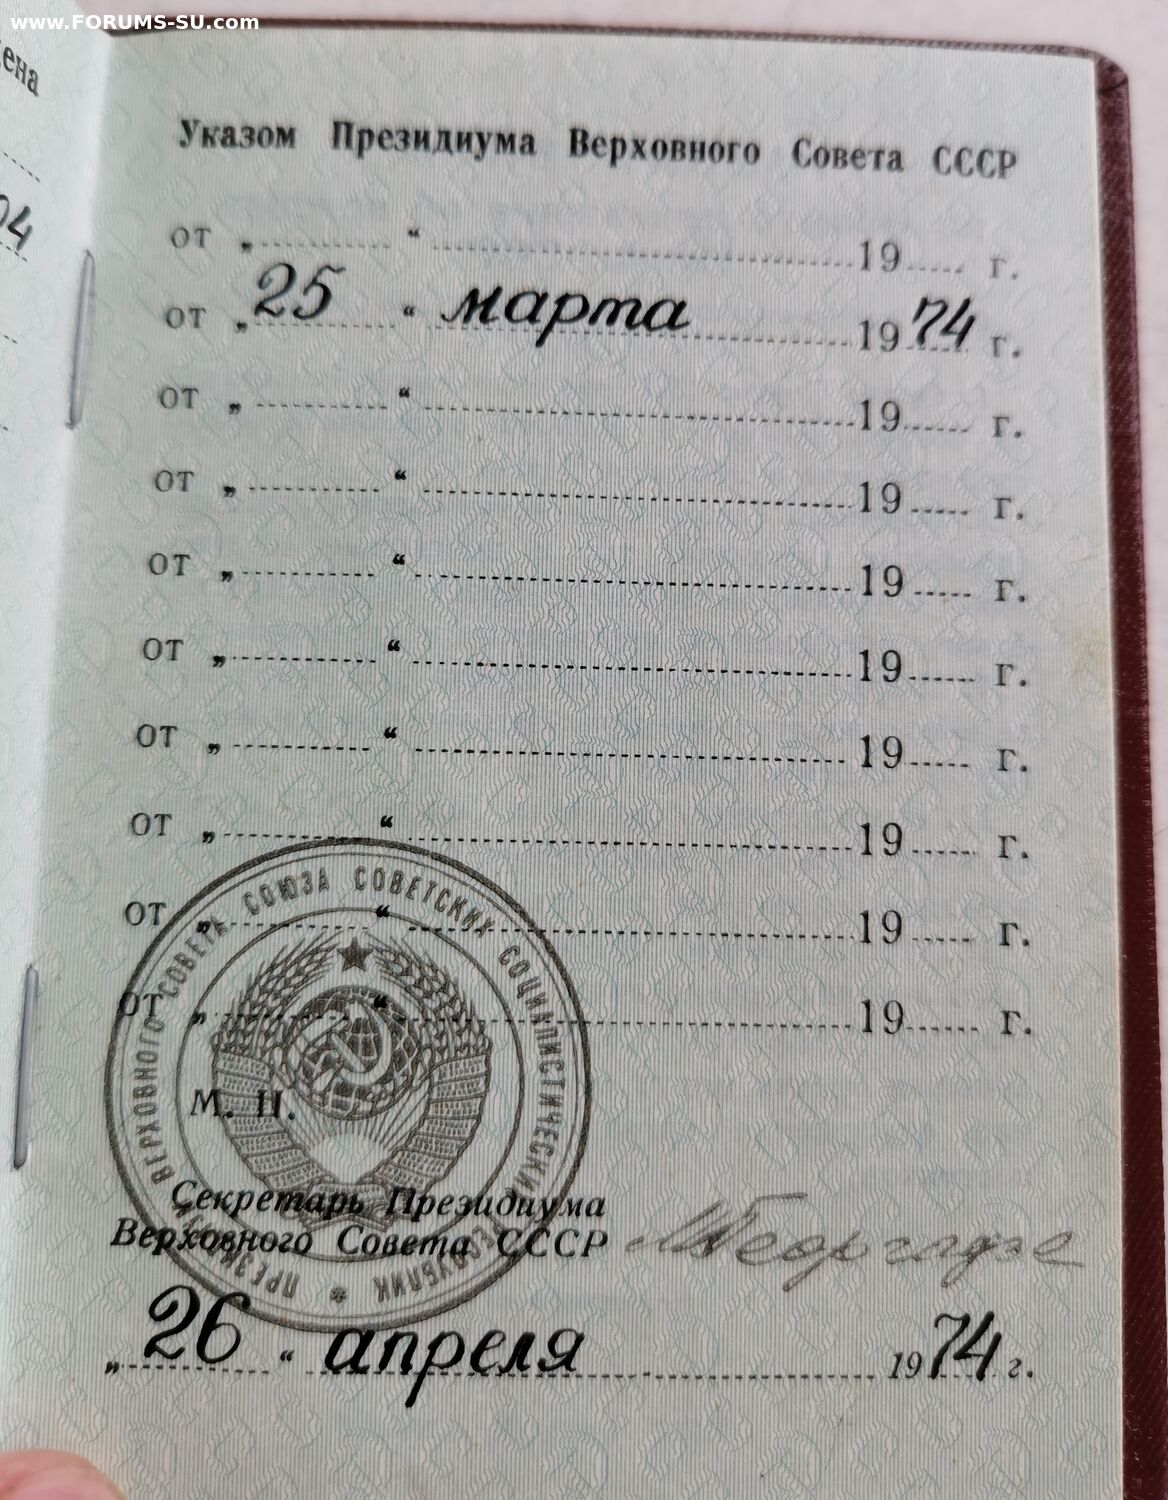 www.FORUMS-SU.com
Указом Президиума Верховного Совета СССР
от „ “ 19 г.
от „ 25 “ марта 1974 г.
от „ “ 19 г.
от „ “ 19 г.
от „ “ 19 г.
от „ “ 19 г.
от „ “ 19 г.
от „ “ 19 г.
от „ “ 19 г.
от „ “ 19 г.
М. П.
Секретарь Президиума
Верховного Совета СССР МГеоргадзе
„ 26 “ апреля 1974 г.
ПРЕЗИДИУМ ВЕРХОВНОГО СОВЕТА СОЮЗА СОВЕТСКИХ СОЦИАЛИСТИЧЕСКИХ РЕСПУБЛИК *